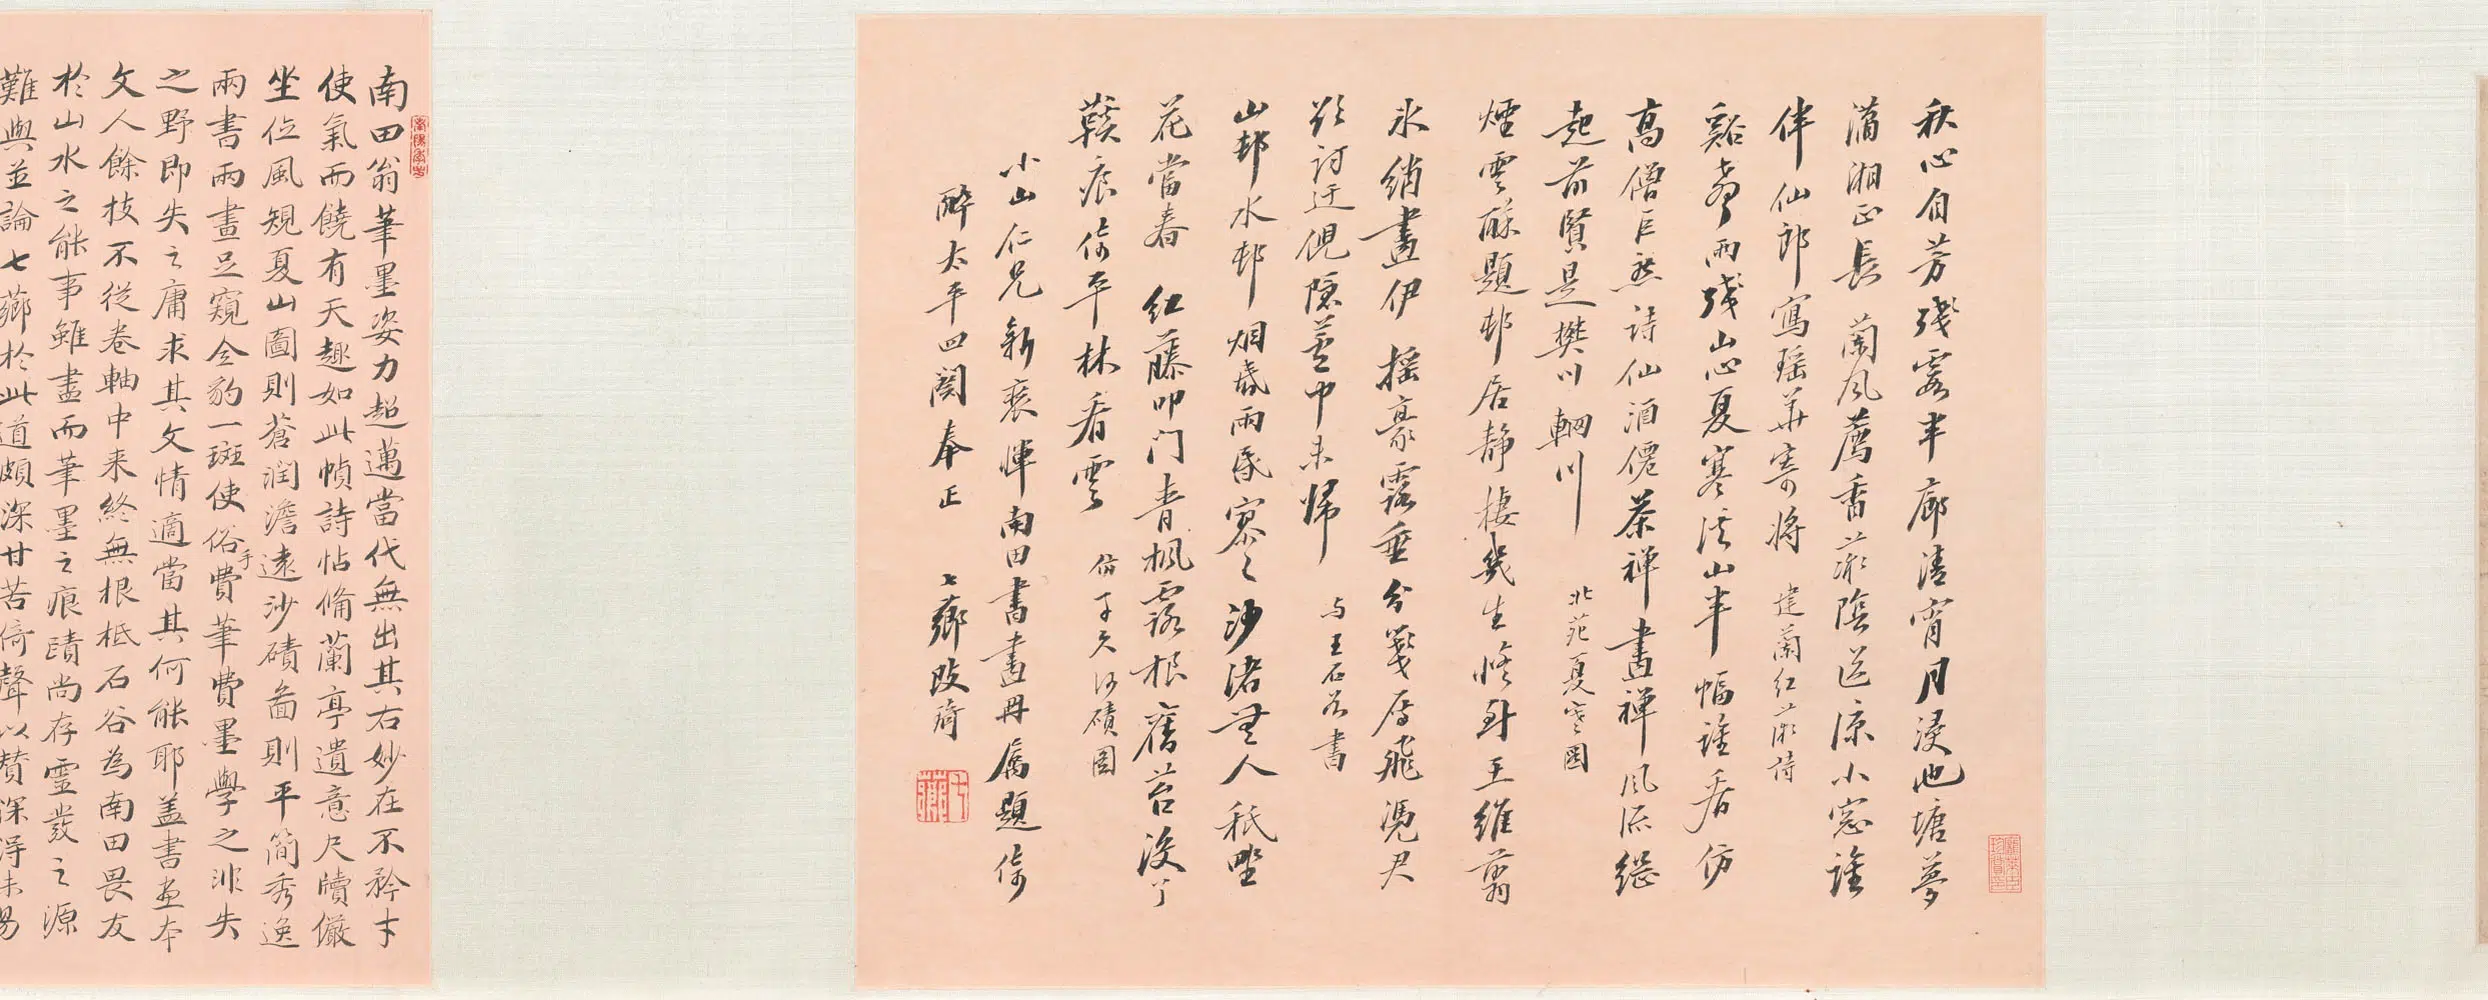 秋心自芳殘雲半廊清宵月浸池塘夢
瀟湘正長 蘭風薦香菘陰送涼小窗誰
伴仙郎寫瑤華寄將 建蘭紅菘詩
谿聲雨殘山心夏寒溪山半幅誰看仿
高僧巨然詩仙酒僊茶禪畫禪風流繼
起前賢是樊川輞川 北苑夏寒圖
煙雲疎題邨居靜棲幾生修到王維翦
冰綃畫伊 搖豪露垂分箋雁飛憑君
欲訪迂倪隱荳巾未歸 与王石谷書
山邨水邨烟昏雨昏寥寥沙渚無人秖野
花當春 紅藤叩門青楓露根舊苔沒了
鞵痕倚平林看雲 仿子久沙磧圖
小山仁兄新裝惲南田書畫冊屬題倚
醉太平四闋奉正 七薌改琦
七薌
南田翁筆墨姿力超邁當代無出其右妙在不矜才
使氣而饒有天趣如此幀詩帖脩蘭亭遺意尺牘儼
坐位風規夏山圖則蒼潤澹遠沙磧畵則平簡秀逸
兩書兩畫足窺全豹一斑使俗手費筆費墨學之非失
之野即失之庸求其文情適當其何能耶盖書畫本
文人餘技不從卷軸中来終無根柢石谷為南田畏友
於山水之能事雖盡而筆墨之痕蹟尚存靈發之源
難與並論七薌於此道頗深甘苦倚聲以贊深得未易